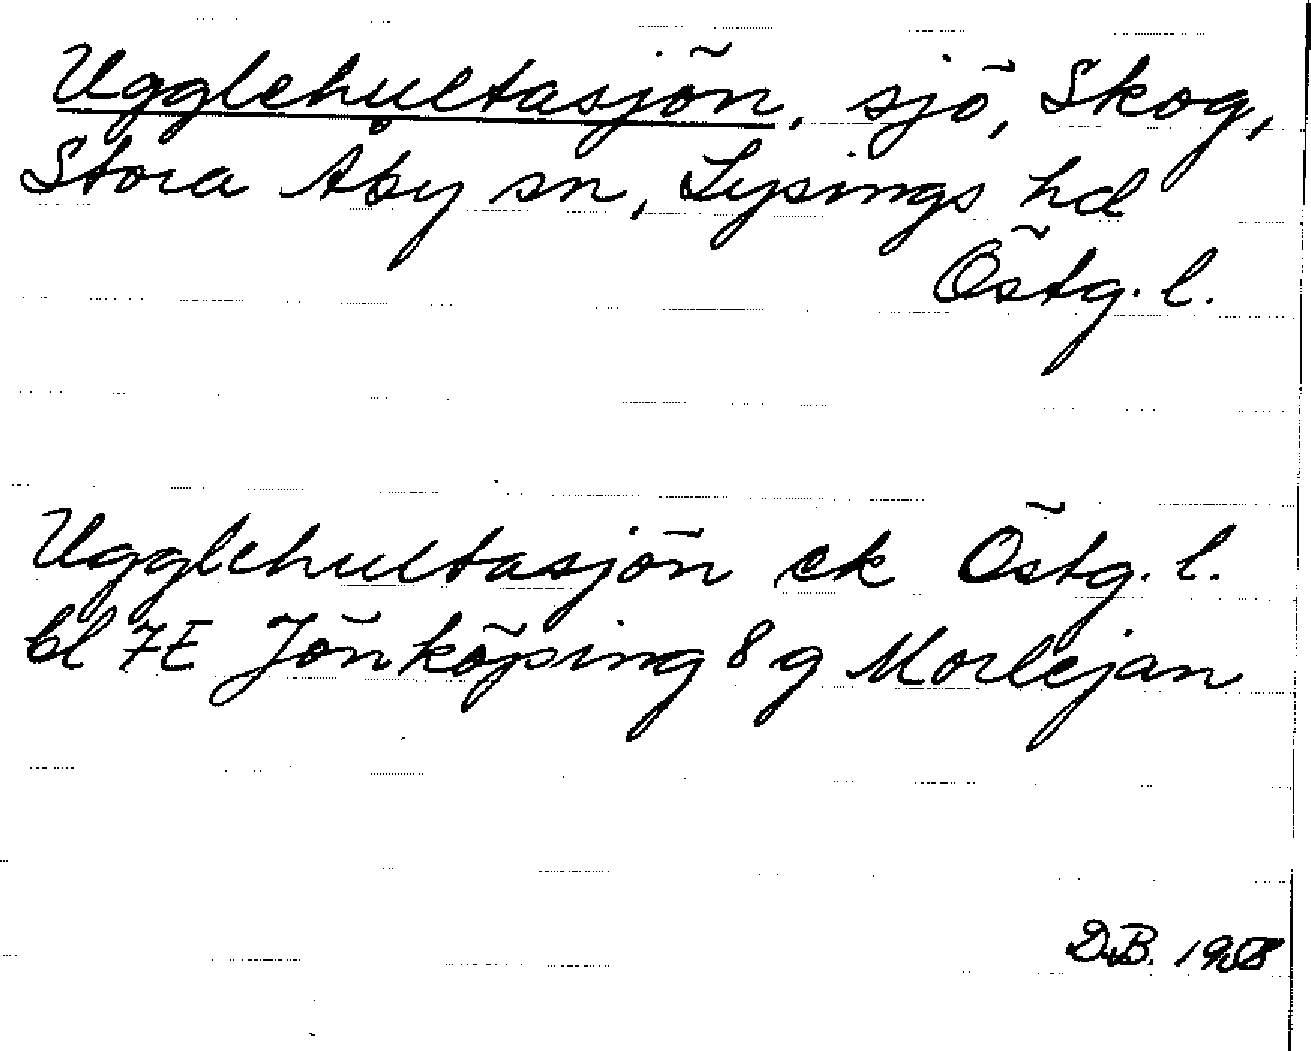 Ugglehultasjön, sjö, Skog,
Stora Åby sn, Lysings hd
Östg. l.
Ugglehultasjön ek Östg. l.
bl 7E Jönköping 8 g Morlejan
D.B. 1958